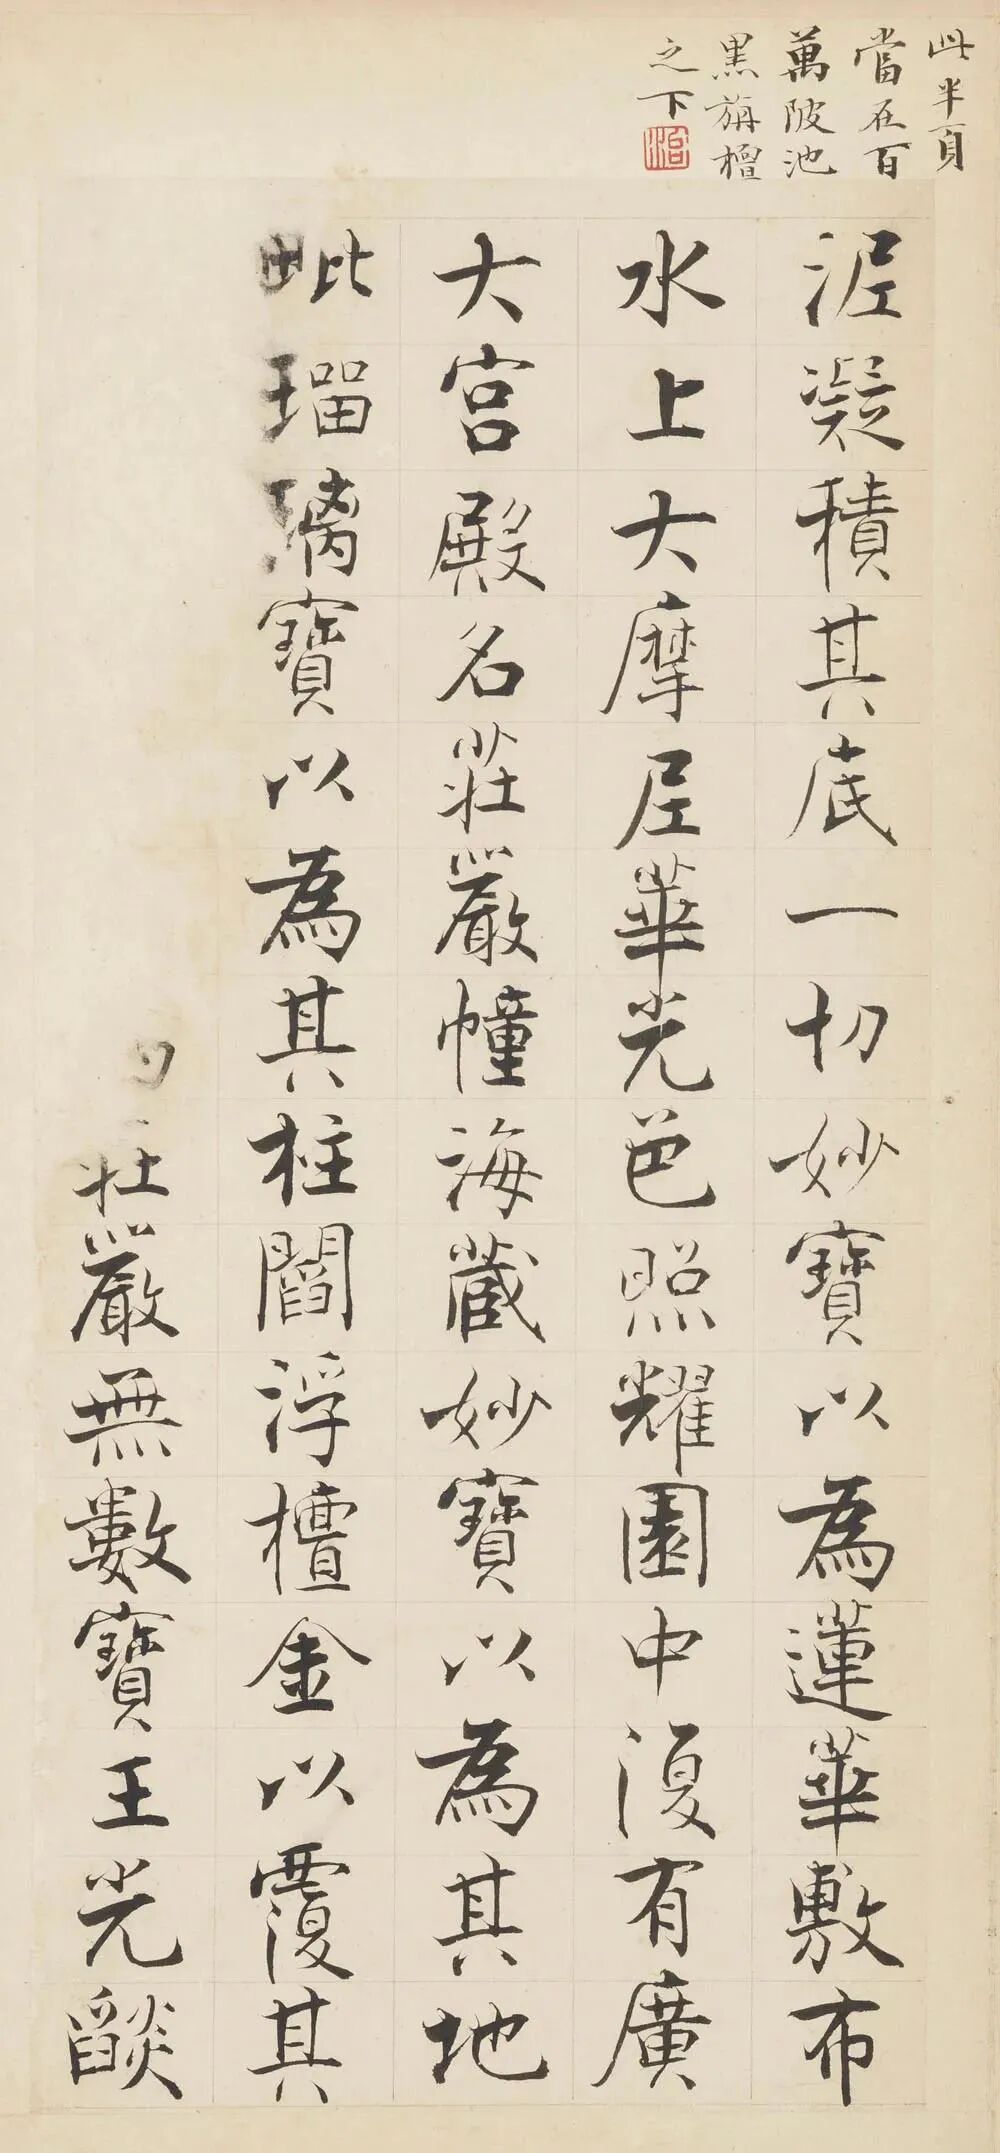 此半頁
當在百
萬陂池
黑旃檀
之下
泥凝積其底一切妙寶以為蓮華敷布
水上大摩尼華光色照耀園中復有廣
大宮殿名莊嚴幢海藏妙寶以為其地
毗瑠璃寶以為其柱閻浮檀金以覆其
莊嚴無數寶王光燄